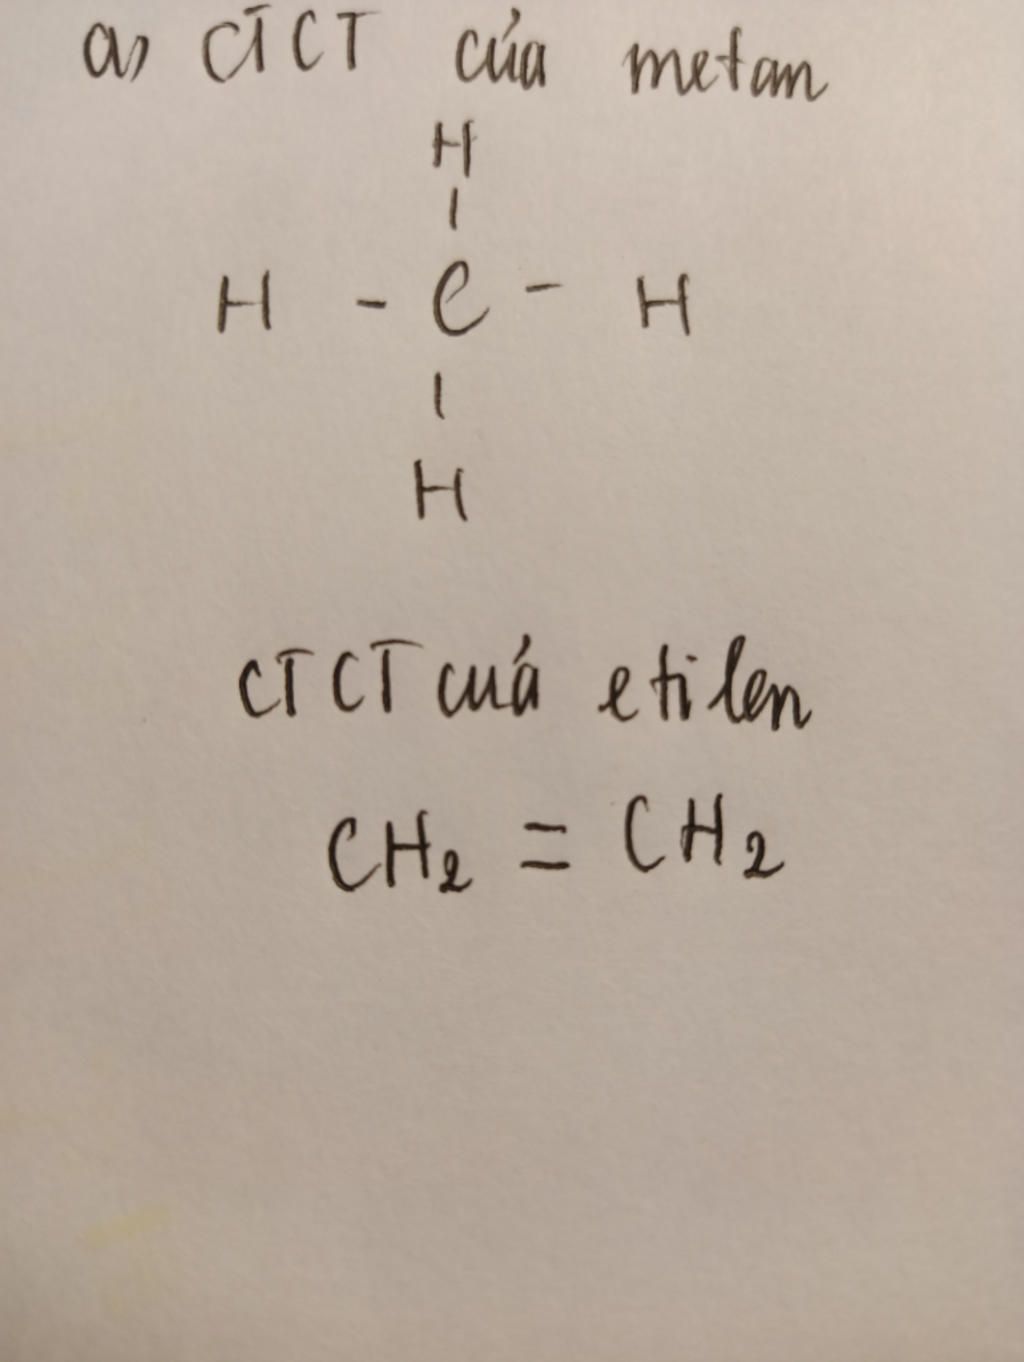 a, CTCT của metan
H
|
H - C - H
|
H
CTCT của etilen
CH₂ = CH₂